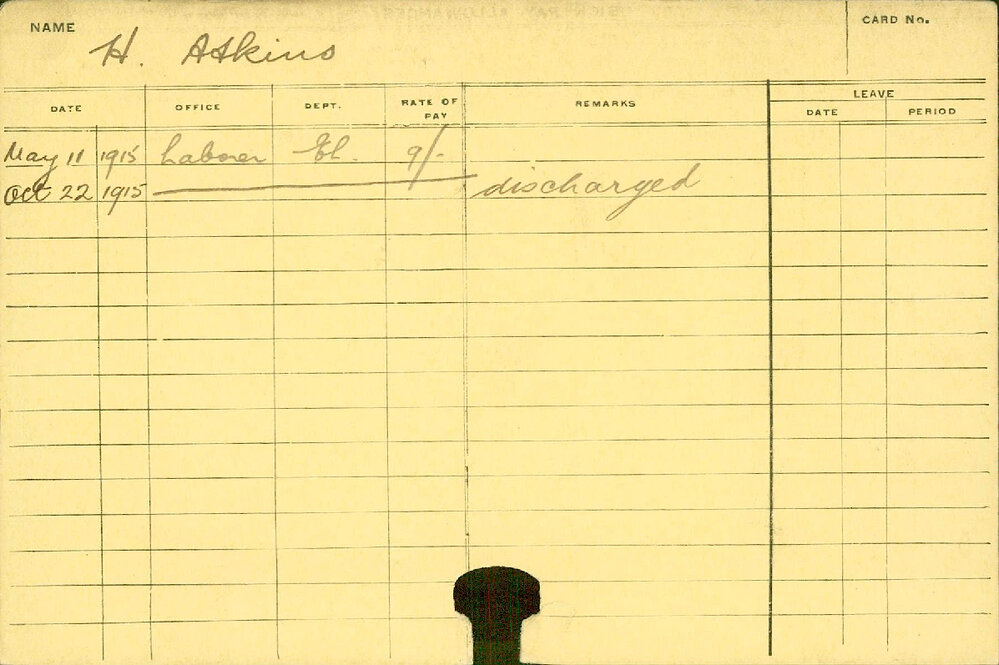 NAME H. Atkins CARD No.
DATE OFFICE DEPT. RATE OF PAY REMARKS LEAVE
DATE PERIOD
May 11 1915 Laborer El. 9/-
Oct 22 1915 discharged